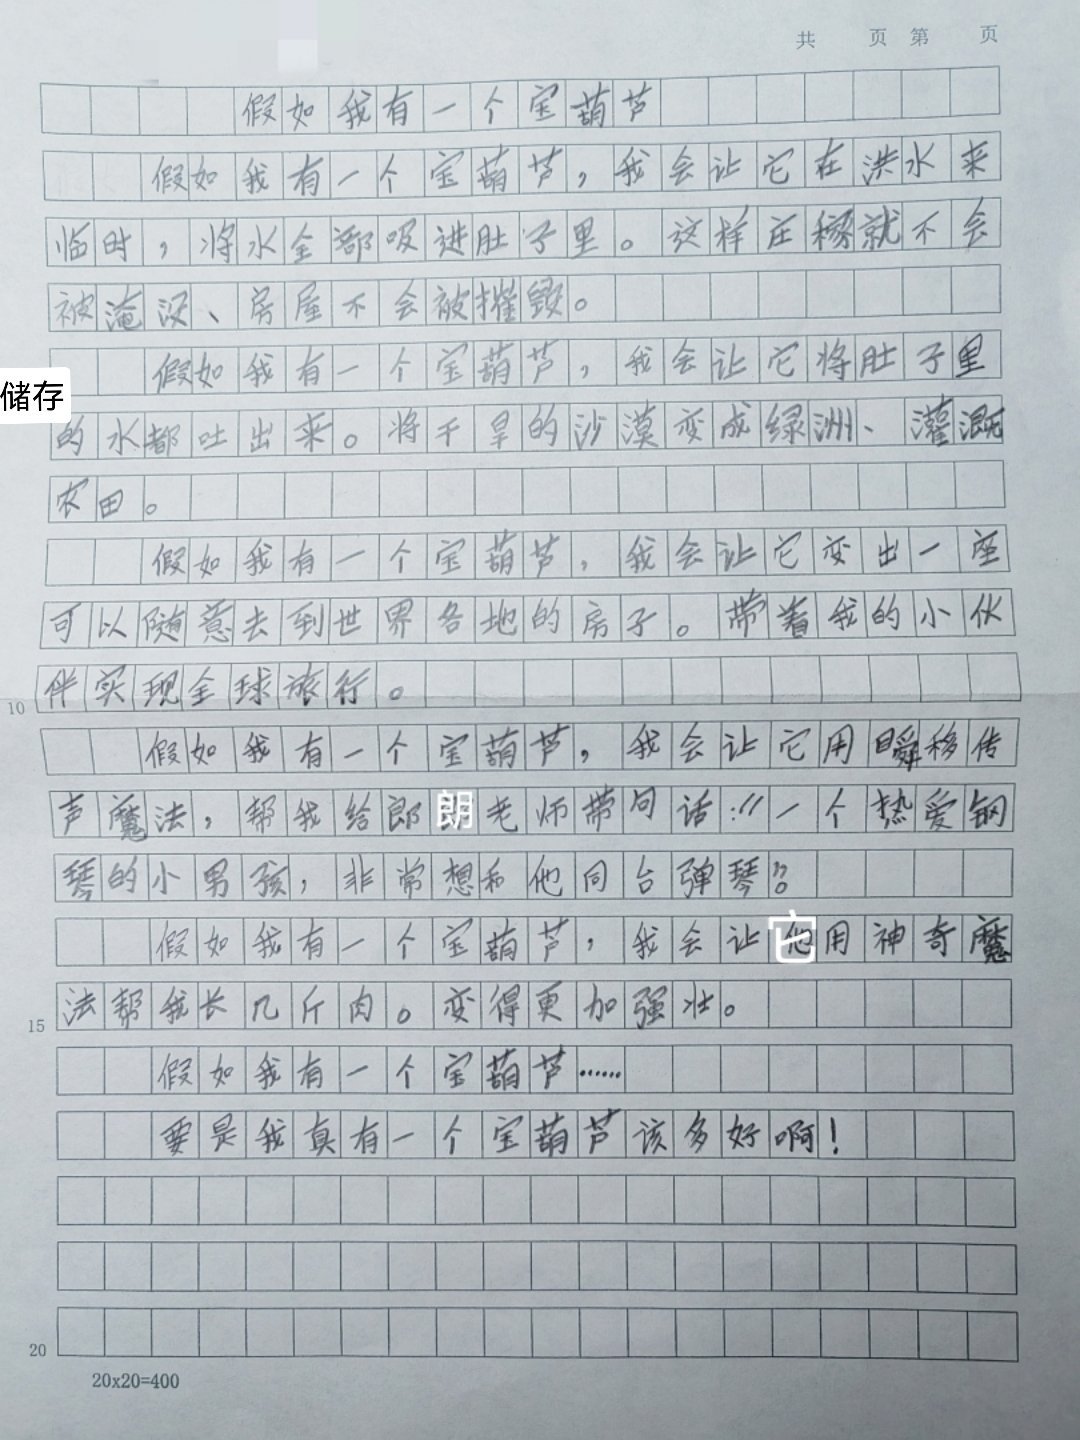 共 页 第 页
假如我有一个宝葫芦
假如我有一个宝葫芦，我会让它在洪水来
临时，将水全都吸进肚子里。这样庄稼就不会
被淹没、房屋不会被摧毁。
假如我有一个宝葫芦，我会让它将肚子里
储存
的水都吐出来。将干旱的沙漠变成绿洲、灌溉
农田。
假如我有一个宝葫芦，我会让它变出一座
可以随意去到世界各地的房子。带着我的小伙
伴实现全球旅行。
10
假如我有一个宝葫芦，我会让它用瞬移传
声魔法，帮我给郎朗老师带句话：“一个热爱钢
琴的小男孩，非常想和他同台弹琴”。
假如我有一个宝葫芦，我会让它用神奇魔
法帮我长几斤肉。变得更加强壮。
15
假如我有一个宝葫芦……
要是我真有一个宝葫芦该多好啊！
20
20x20=400